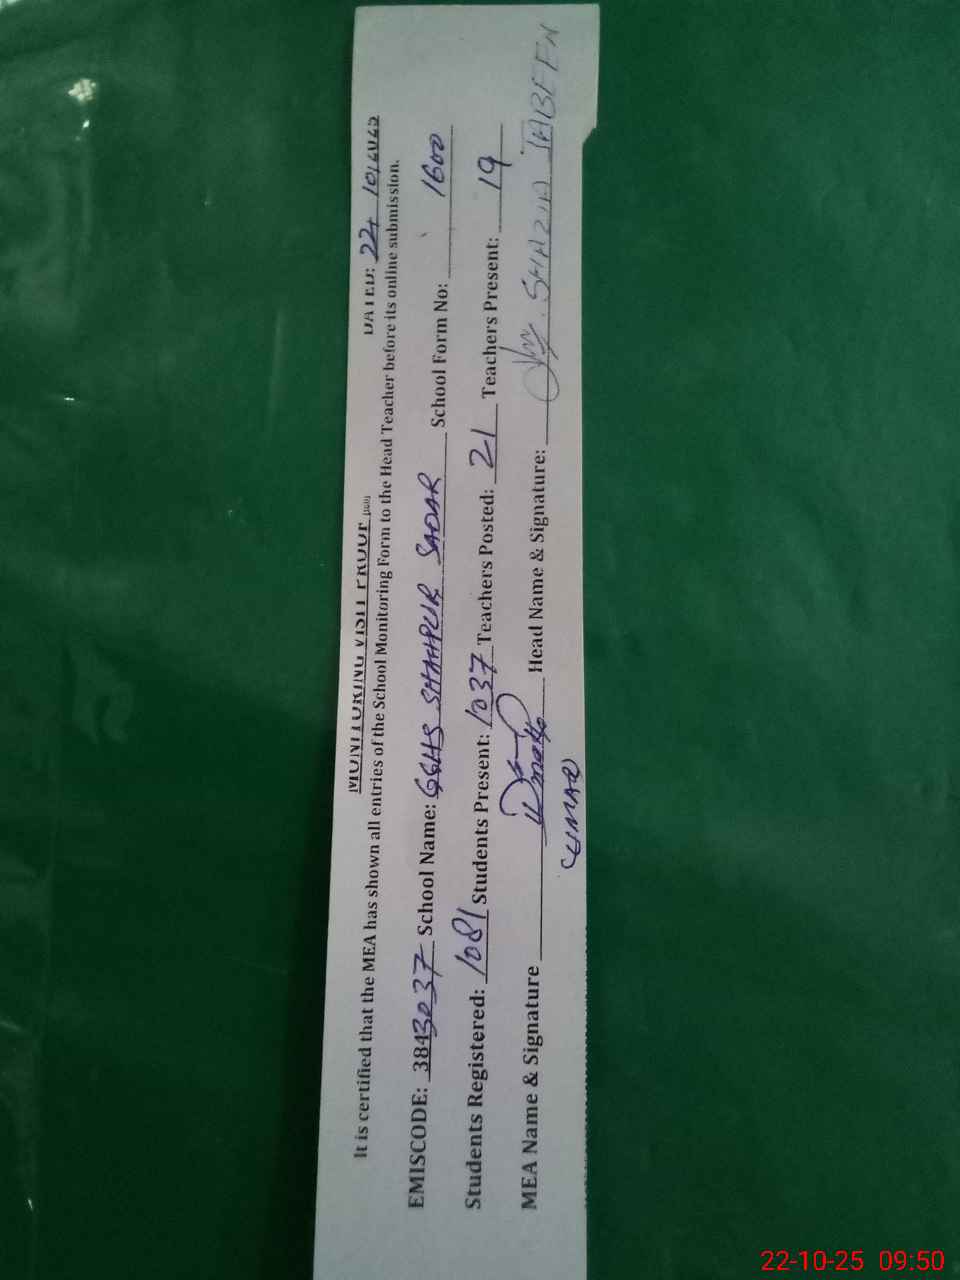 MONITORING VISIT PROOF DATED: 22 10/2025
It is certified that the MEA has shown all entries of the School Monitoring Form to the Head Teacher before its online submission.
EMISCODE: 3843037 School Name: GGHS SHAHPUR SADAR School Form No: 1600
Students Registered: 1081 Students Present: 1037 Teachers Posted: 21 Teachers Present: 19
MEA Name & Signature Head Name & Signature: SHAZIA JABEEN
UMAR
22-10-25 09:50